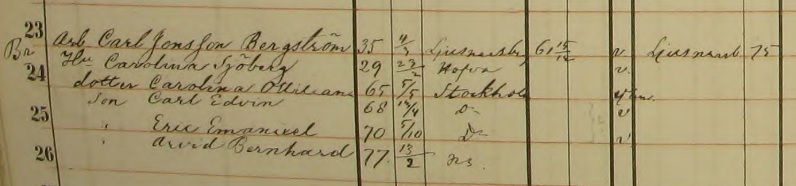 23
Br Arb Carl Jonsson Bergström 35 4/3 Ljusnarsby 61 15/12 v Ljusnarsb 75
Hu Carolina Sjöberg 29 23/2 Hofva v.
24
dotter Carolina Ottiliana 65 5/5 Stockholm
son Carl Edvin 68 12/4 D:o v
25
" Eric Emanuel 70 5/10 D:o v
" Arvid Bernhard 77 13/2 hs.
26